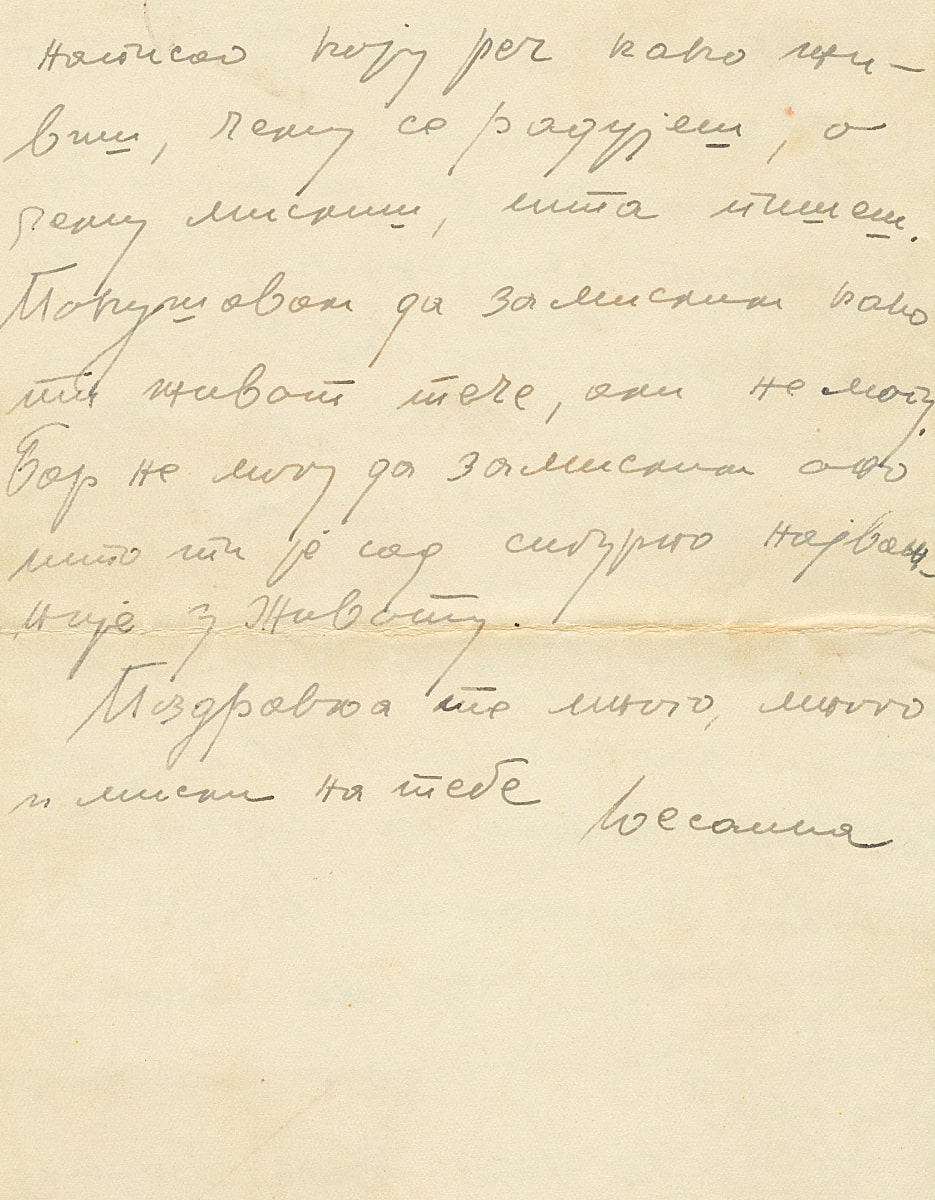 написао коју реч како жи-
виш, чему се радујеш, о
чему мислиш, шта пишеш.
Покушавам да замислим како
ти живот тече, али не могу.
Бар не могу да замислим оно
што ти је сад сигурно најваж-
није у животу.
Поздравља те много, много
и мисли на тебе